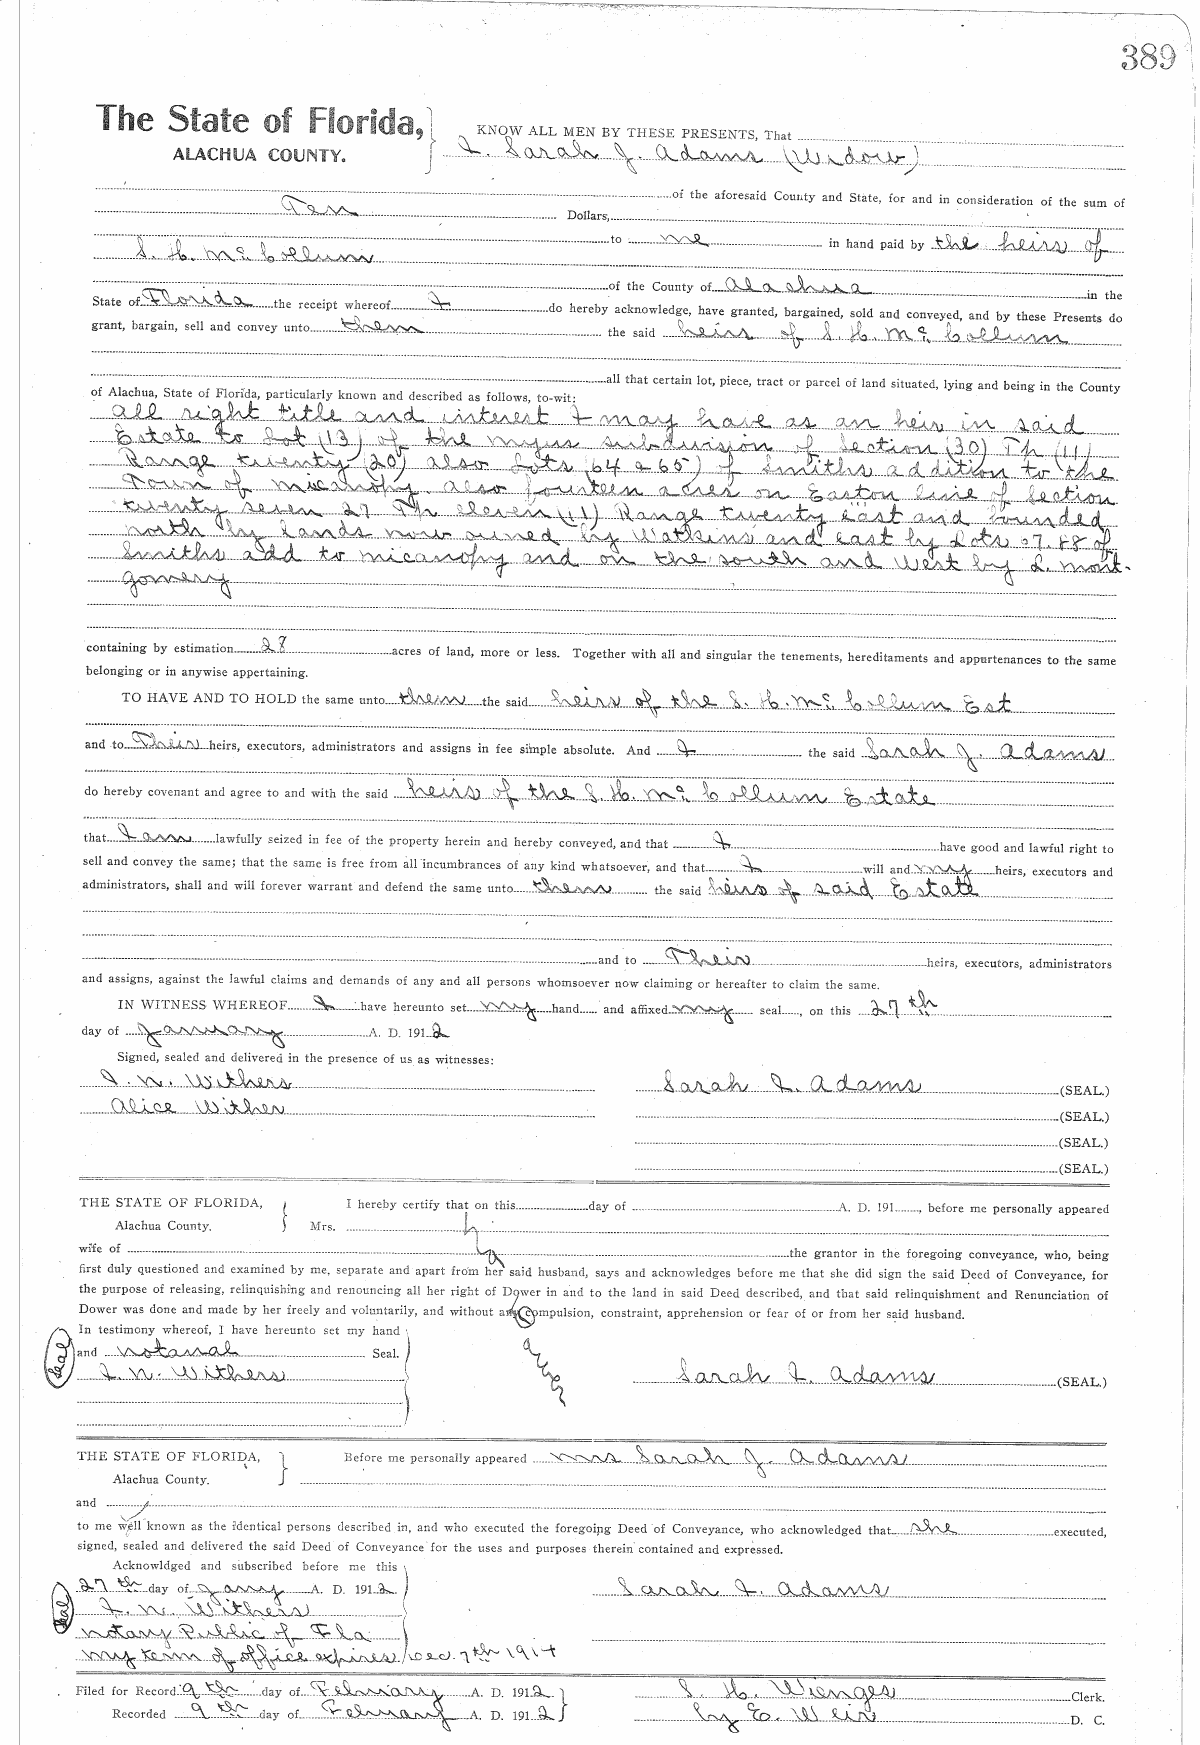 389
The State of Florida,
ALACHUA COUNTY.
KNOW ALL MEN BY THESE PRESENTS, That
I. Sarah J. Adams (Widow)
of the aforesaid County and State, for and in consideration of the sum of
Ten Dollars,
to me in hand paid by the heirs of
S. H. McCollum
of the County of Alachua in the
State of Florida the receipt whereof I do hereby acknowledge, have granted, bargained, sold and conveyed, and by these Presents do
grant, bargain, sell and convey unto them the said heirs of S. H. McCollum
all that certain lot, piece, tract or parcel of land situated, lying and being in the County
of Alachua, State of Florida, particularly known and described as follows, to-wit:
All right title and interest I may have as an heir in said
Estate to Lot (13) of the subdivision of Section (30) Tp (11)
Range twenty (20) also Lots (64 & 65) of Smiths addition to the
Town of Micanopy. also fourteen acres on East line of Section
twenty seven 27 Tp eleven (11) Range twenty East and bounded
north by lands now owned by Watkins and east by Lots 88 of
Smiths add to Micanopy and on the south and West by L. Mont-
gomery
containing by estimation 28 acres of land, more or less. Together with all and singular the tenements, hereditaments and appurtenances to the same
belonging or in anywise appertaining.
TO HAVE AND TO HOLD the same unto them the said heirs of the S. H. McCollum Est
and to Their heirs, executors, administrators and assigns in fee simple absolute. And I the said Sarah J. Adams
do hereby covenant and agree to and with the said heirs of the S. H. McCollum Estate
that I am lawfully seized in fee of the property herein and hereby conveyed, and that I have good and lawful right to
sell and convey the same; that the same is free from all incumbrances of any kind whatsoever, and that I will and my heirs, executors and
administrators, shall and will forever warrant and defend the same unto them the said heirs of said Estate
and to Their heirs, executors, administrators
and assigns, against the lawful claims and demands of any and all persons whomsoever now claiming or hereafter to claim the same.
IN WITNESS WHEREOF I have hereunto set my hand and affixed my seal, on this 27th
day of January A. D. 1912
Signed, sealed and delivered in the presence of us as witnesses:
I. N. Withers
Sarah I. Adams (SEAL.)
Alice Wither
(SEAL.)
(SEAL.)
(SEAL.)
THE STATE OF FLORIDA,
Alachua County.
I hereby certify that on this day of A. D. 191 , before me personally appeared
Mrs.
wife of the grantor in the foregoing conveyance, who, being
first duly questioned and examined by me, separate and apart from her said husband, says and acknowledges before me that she did sign the said Deed of Conveyance, for
the purpose of releasing, relinquishing and renouncing all her right of Dower in and to the land in said Deed described, and that said relinquishment and Renunciation of
Dower was done and made by her freely and voluntarily, and without any compulsion, constraint, apprehension or fear of or from her said husband.
In testimony whereof, I have hereunto set my hand
Seal
and notarial Seal.
I. N. Withers
Sarah I. Adams (SEAL.)
THE STATE OF FLORIDA,
Alachua County.
Before me personally appeared Mrs Sarah J. Adams
and
to me well known as the identical persons described in, and who executed the foregoing Deed of Conveyance, who acknowledged that she executed,
signed, sealed and delivered the said Deed of Conveyance for the uses and purposes therein contained and expressed.
Acknowldged and subscribed before me this
27th day of Jany A. D. 1912
Sarah I. Adams
Seal
I. N. Withers
Notary Public of Fla
My term of office expires Dec. 7th 1914
Filed for Record 9th day of February A. D. 1912
S. H. Wienges Clerk.
Recorded 9th day of February A. D. 1912
by E. Weir D. C.